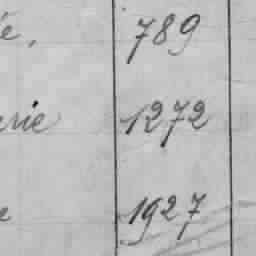 é, 789
erie 1272
e 1927